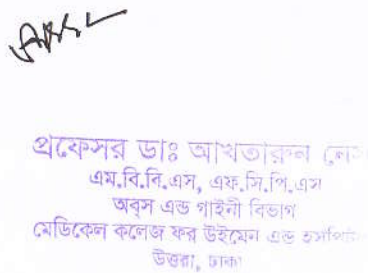 প্রফেসর ডাঃ আখতারুন
এম.বি.বি.এস, এফ.সি.পি.এস
অব্স এন্ড গাইনী বিভাগ
মেডিকেল কলেজ ফর উইমেন এন্ড
উত্তরা, ঢাকা